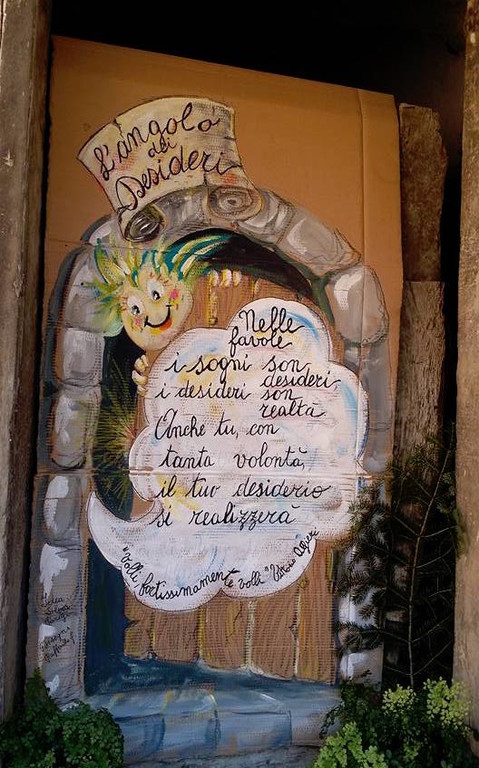 L'angolo
dei
Desideri
Nelle
favole
i sogni son
desideri
i desideri son
realtà
Anche tu, con
tanta volontà,
il tuo desiderio
si realizzerà
"Volli, fortissimamente volli" Vittorio Alfieri